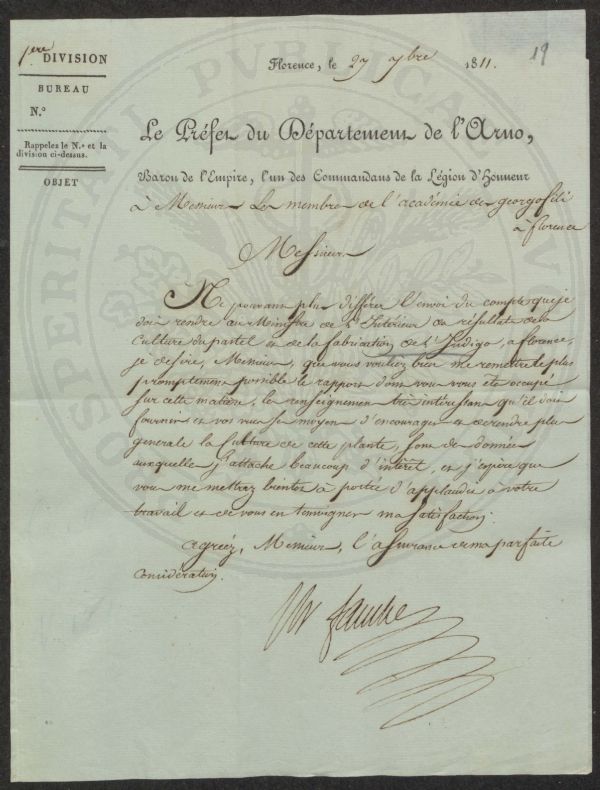 1ere DIVISION
BUREAU
N.°
Rappelez le N.° et la
division ci-dessus.
OBJET
Florence, le 27 7bre 1811.
19
Le Préfet du Département de l'Arno,
Baron de l'Empire, l'un des Commandans de la Légion d'Honneur
à Messieurs les membres de l'académie des georgofili
à florence
Messieurs
Ne pouvant plus différer l'envoi du compte que je
dois rendre au Ministre de l'Intérieur des résultats de la
Culture du pastel et de la fabrication de l'Indigo, a florence,
je désire, Messieurs, que vous vouliez bien me remettre le plus
promptement possible le rapport dont vous vous êtes occupé
sur cette matière, les renseignemens très intéressans qu'il doit
fournir et vos vues sur les moyens d'encourager et de rendre plus
generale la Culture de cette plante, sont des données
auxquelles j'attache beaucoup d'intérêt, et j'espère que
vous me mettrez bientôt à portée d'applaudir à votre
travail et de vous en temoigner ma satisfaction.
agréez, Messieurs, l'assurance de ma parfaite
Considération.